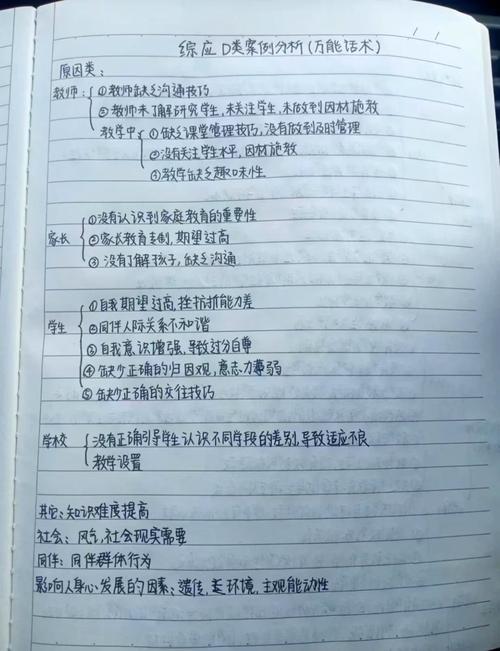 综应 D类案例分析(万能话术)
原因类:
教师: ①教师缺乏沟通技巧
②教师未了解研究学生,未关注学生,未做到因材施教
教学中 ①缺乏课堂管理技巧,没有做到及时管理
②没有关注学生水平,因材施教
③教学缺乏趣味性
家长 ①没有认识到家庭教育的重要性
②家长教育专制,期望过高
③没有了解孩子,缺乏沟通
学生 ①自我期望过高,挫折抗挫能力差
②同伴人际关系不和谐
③自我意识增强,导致过分自尊
④缺少正确的归因观,意志力薄弱
⑤缺少正确的交往技巧
学校 没有正确引导学生认识不同学段的差别,导致适应不良
教学设置
其它:知识难度提高
社会:风气,社会现实需要
同伴:同伴群体行为
影响人身心发展的因素:遗传,环境,主观能动性